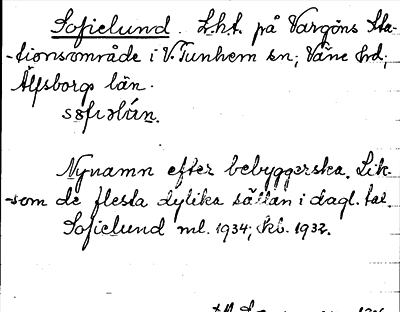 Sofielund. Lht. på Vargöns sta-
-tionsområde i V. Tunhem sn; Väne hd;
Älfsborgs län.
Nynamn efter bebyggerska. Lik-
-som de flesta dylika sällan i dagl. tal.
Sofielund ml. 1934; kb. 1932.